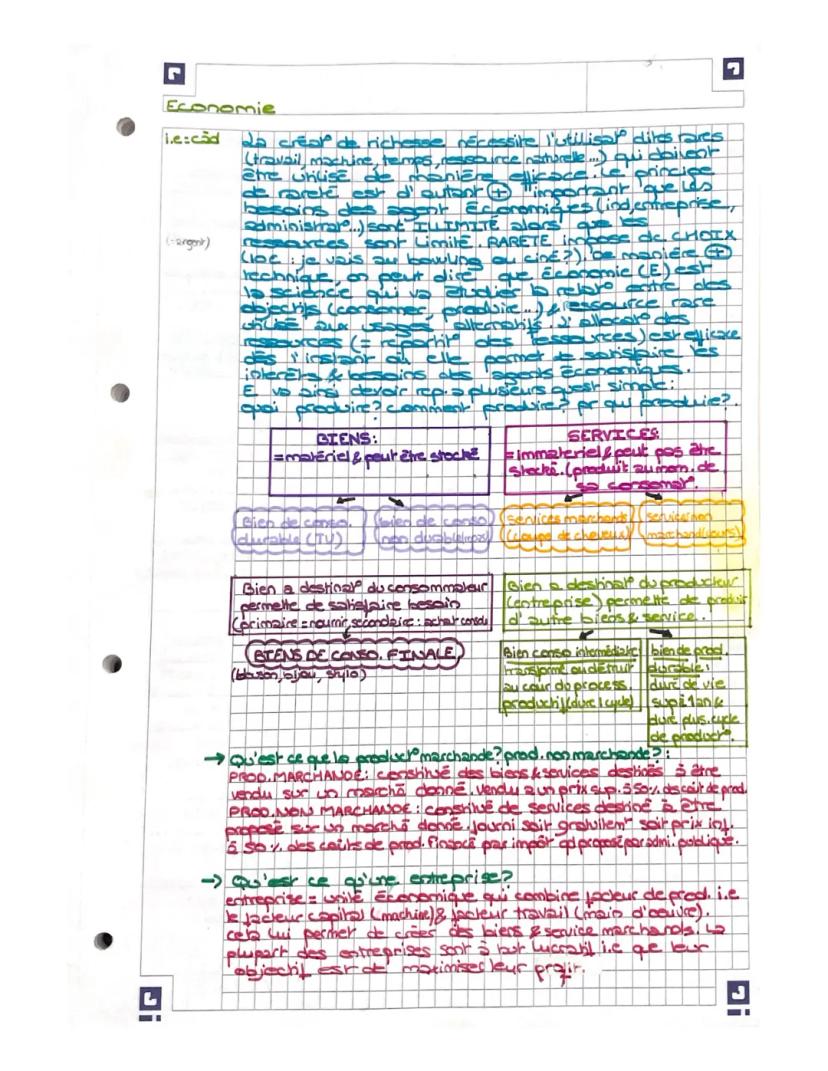 Economie
i.e: càd
La créat° de richesse nécessite l'utilisat° dites rares
(travail, machine, temps, ressource naturelle...) qui doivent
être utilisé de manière efficace. Le principe
de rareté est d'autant + important que les
besoins des agent économiques (ind, entreprise,
administrat°..) sont ILLIMITÉ alors que les
(=argent)
ressources sont Limité. RARETÉ impose de CHOIX
(loc: je vais au bowling ou ciné?). De manière +
technique, on peut dire que Économie (E) est
la science qui va étudier la relat° entre des
objectifs (consomer, produire...) & ressource rare
utilisé aux usages alternatifs. L'allocat° des
ressources (= répartit° des ressources) est efficace
dès l'instant où elle permet de satisfaire les
interêts & besoins des agents économiques.
E va ainsi devoir rep. à plusieurs quest simple:
quoi produire? comment produire? pr qui produire?
BIENS:
= matériel & peut être stocké
SERVICES
= immateriel & peut pas être
stocké. (produit au mom. de
sa consomat°.
Bien de conso.
durable (TV)
bien de conso
non durable
services marchand
(coupe de cheveux)
service non
marchand (cours)
Bien a destinat° du consommateur
permette de satisfaire besoin
(primaire = nourrir, secondaire: achat conso)
BIENS DE CONSO. FINALE
(blouson, bijou, stylo)
Bien a destinat° du producteur
(entreprise) permette de produir
d'autre biens & service.
Bien conso intermédiaire
transformé ou détruit
au cour du process
productif (dure 1 cycle)
bien de prod.
durable:
duré de vie
sup à 1an &
dure plus. cycle
de product°.
→ Qu'est ce que la product° marchande? prod. non marchande?:
PROD. MARCHANDE: constitué des biens & services destinés à être
vendu sur un marché donné. vendu a un prix sup. à 50% des coût de prod.
PROD. NON MARCHANDE: constitué de services destiné à être
proposé sur un marché donné. fourni soit gratuitent soit prix inf.
à 50 % des coûts de prod. Financé par impôt qd proposé par admi. publique.
→ Qu'est ce qu'une entreprise?
entreprise = unité économique qui combine facteur de prod. i.e
le facteur capital (machine) & facteur travail (main d'oeuvre).
cela lui permet de créer des biens & service marchands. La
plupart des entreprises sont à but lucratif i.e que leur
objectif est de maximiser leur profit.